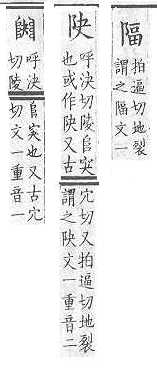 拍逼切地裂
謂之
文一
呼決切陵𨸏突
也或作
又古
穴切又拍逼切地裂
謂之
文一重音二
呼決
切陵
𨸏突也又古穴
切文一重音一